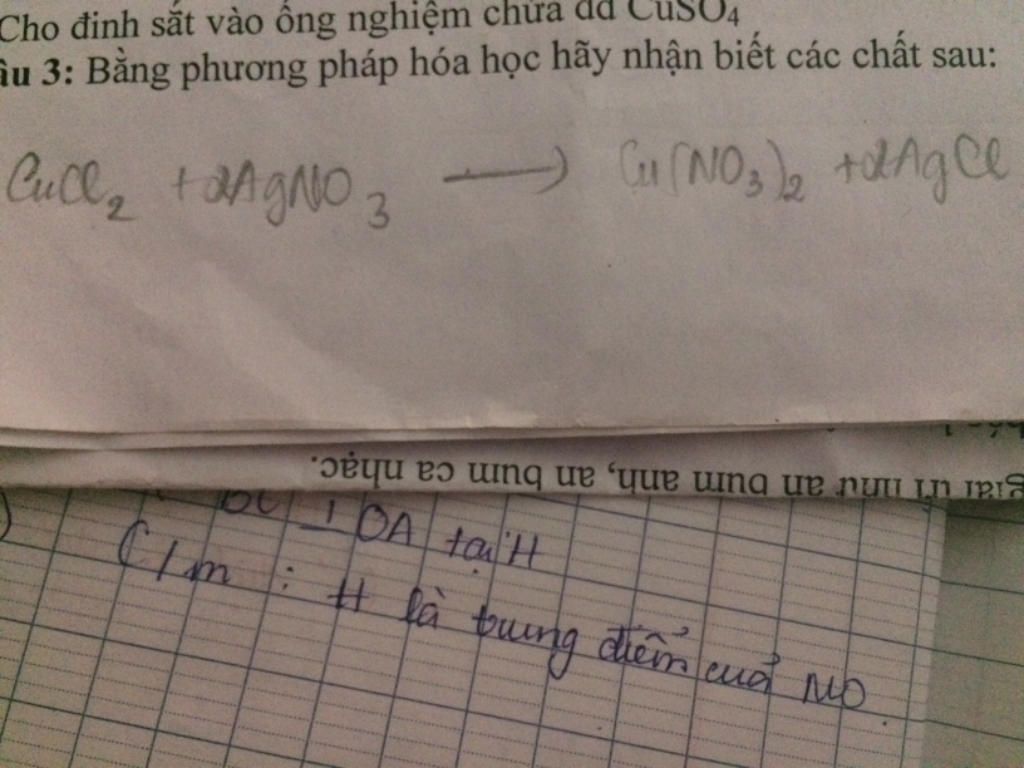 Cho đinh sắt vào ống nghiệm chứa dd CuSO₄
âu 3: Bằng phương pháp hóa học hãy nhận biết các chất sau:
CuCl₂ + 2AgNO₃ → Cu(NO₃)₂ + 2AgCl
giải trí như an bum ảnh, an bum ca nhạc.
⊥ OA tại H
C/m : H là trung điểm của NO.